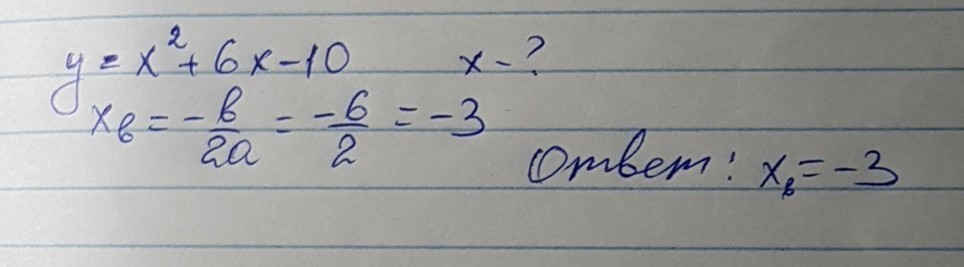 y = x² + 6x - 10 x - ?
xв = -b/2a = -6/2 = -3
Ответ: xв = -3